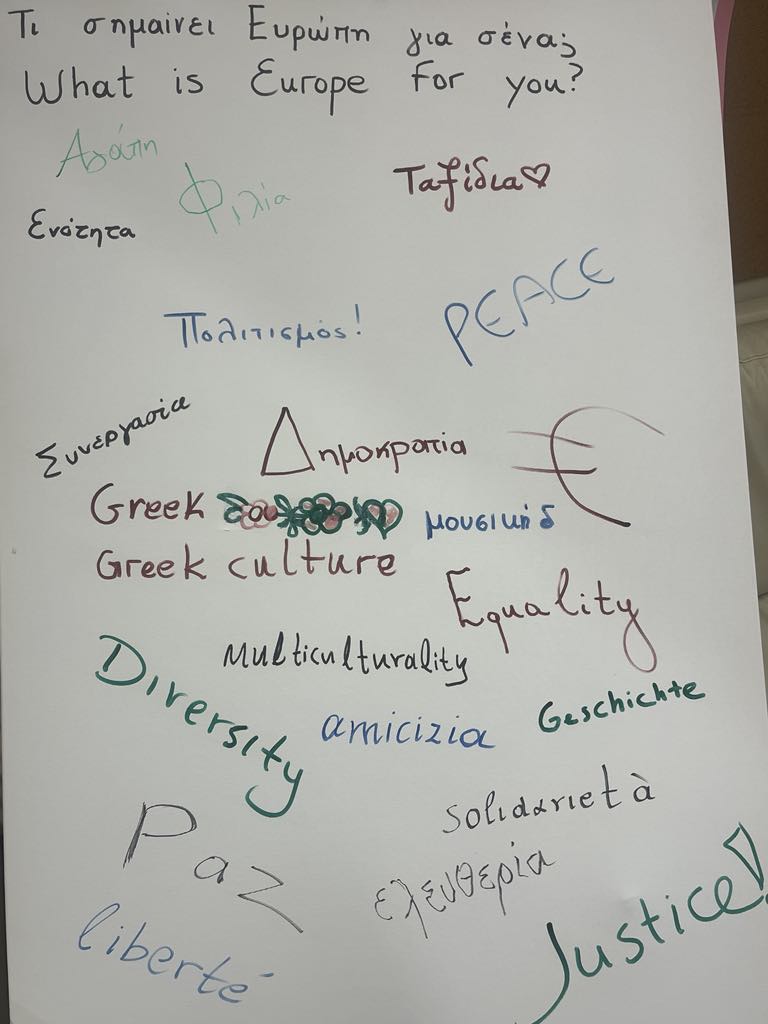 Τι σημαίνει Ευρώπη για σένα;
What is Europe for you?
Αγάπη
Φιλία
Ταξίδια♡
Ενότητα
Πολιτισμός!
PEACE
Συνεργασία
Δημοκρατία
€
Greek
μουσική
Greek culture
Equality
Multiculturality
Diversity
amicizia
Geschichte
solidarietà
Paz
ελευθερία
liberté
Justice!